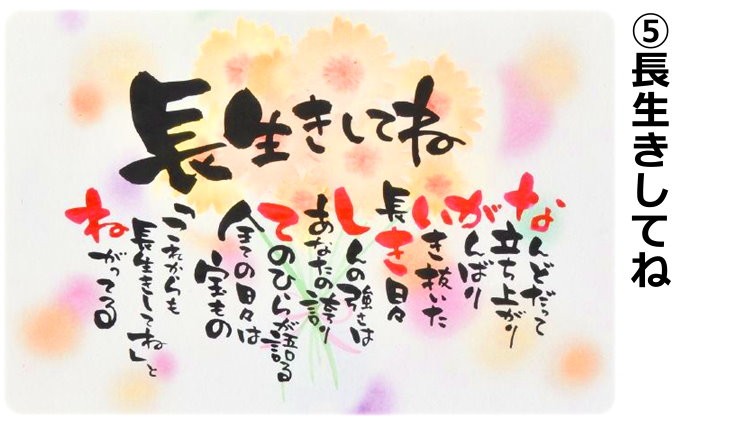 ⑤長生きしてね
長生きしてね
なんどだって
立ち上がり
がんばり
いき抜いた
長き日々
しんの強さは
あなたの誇り
てのひらが語る
全ての日々は
宝もの
「これからも
長生きしてね」と
ねがってる